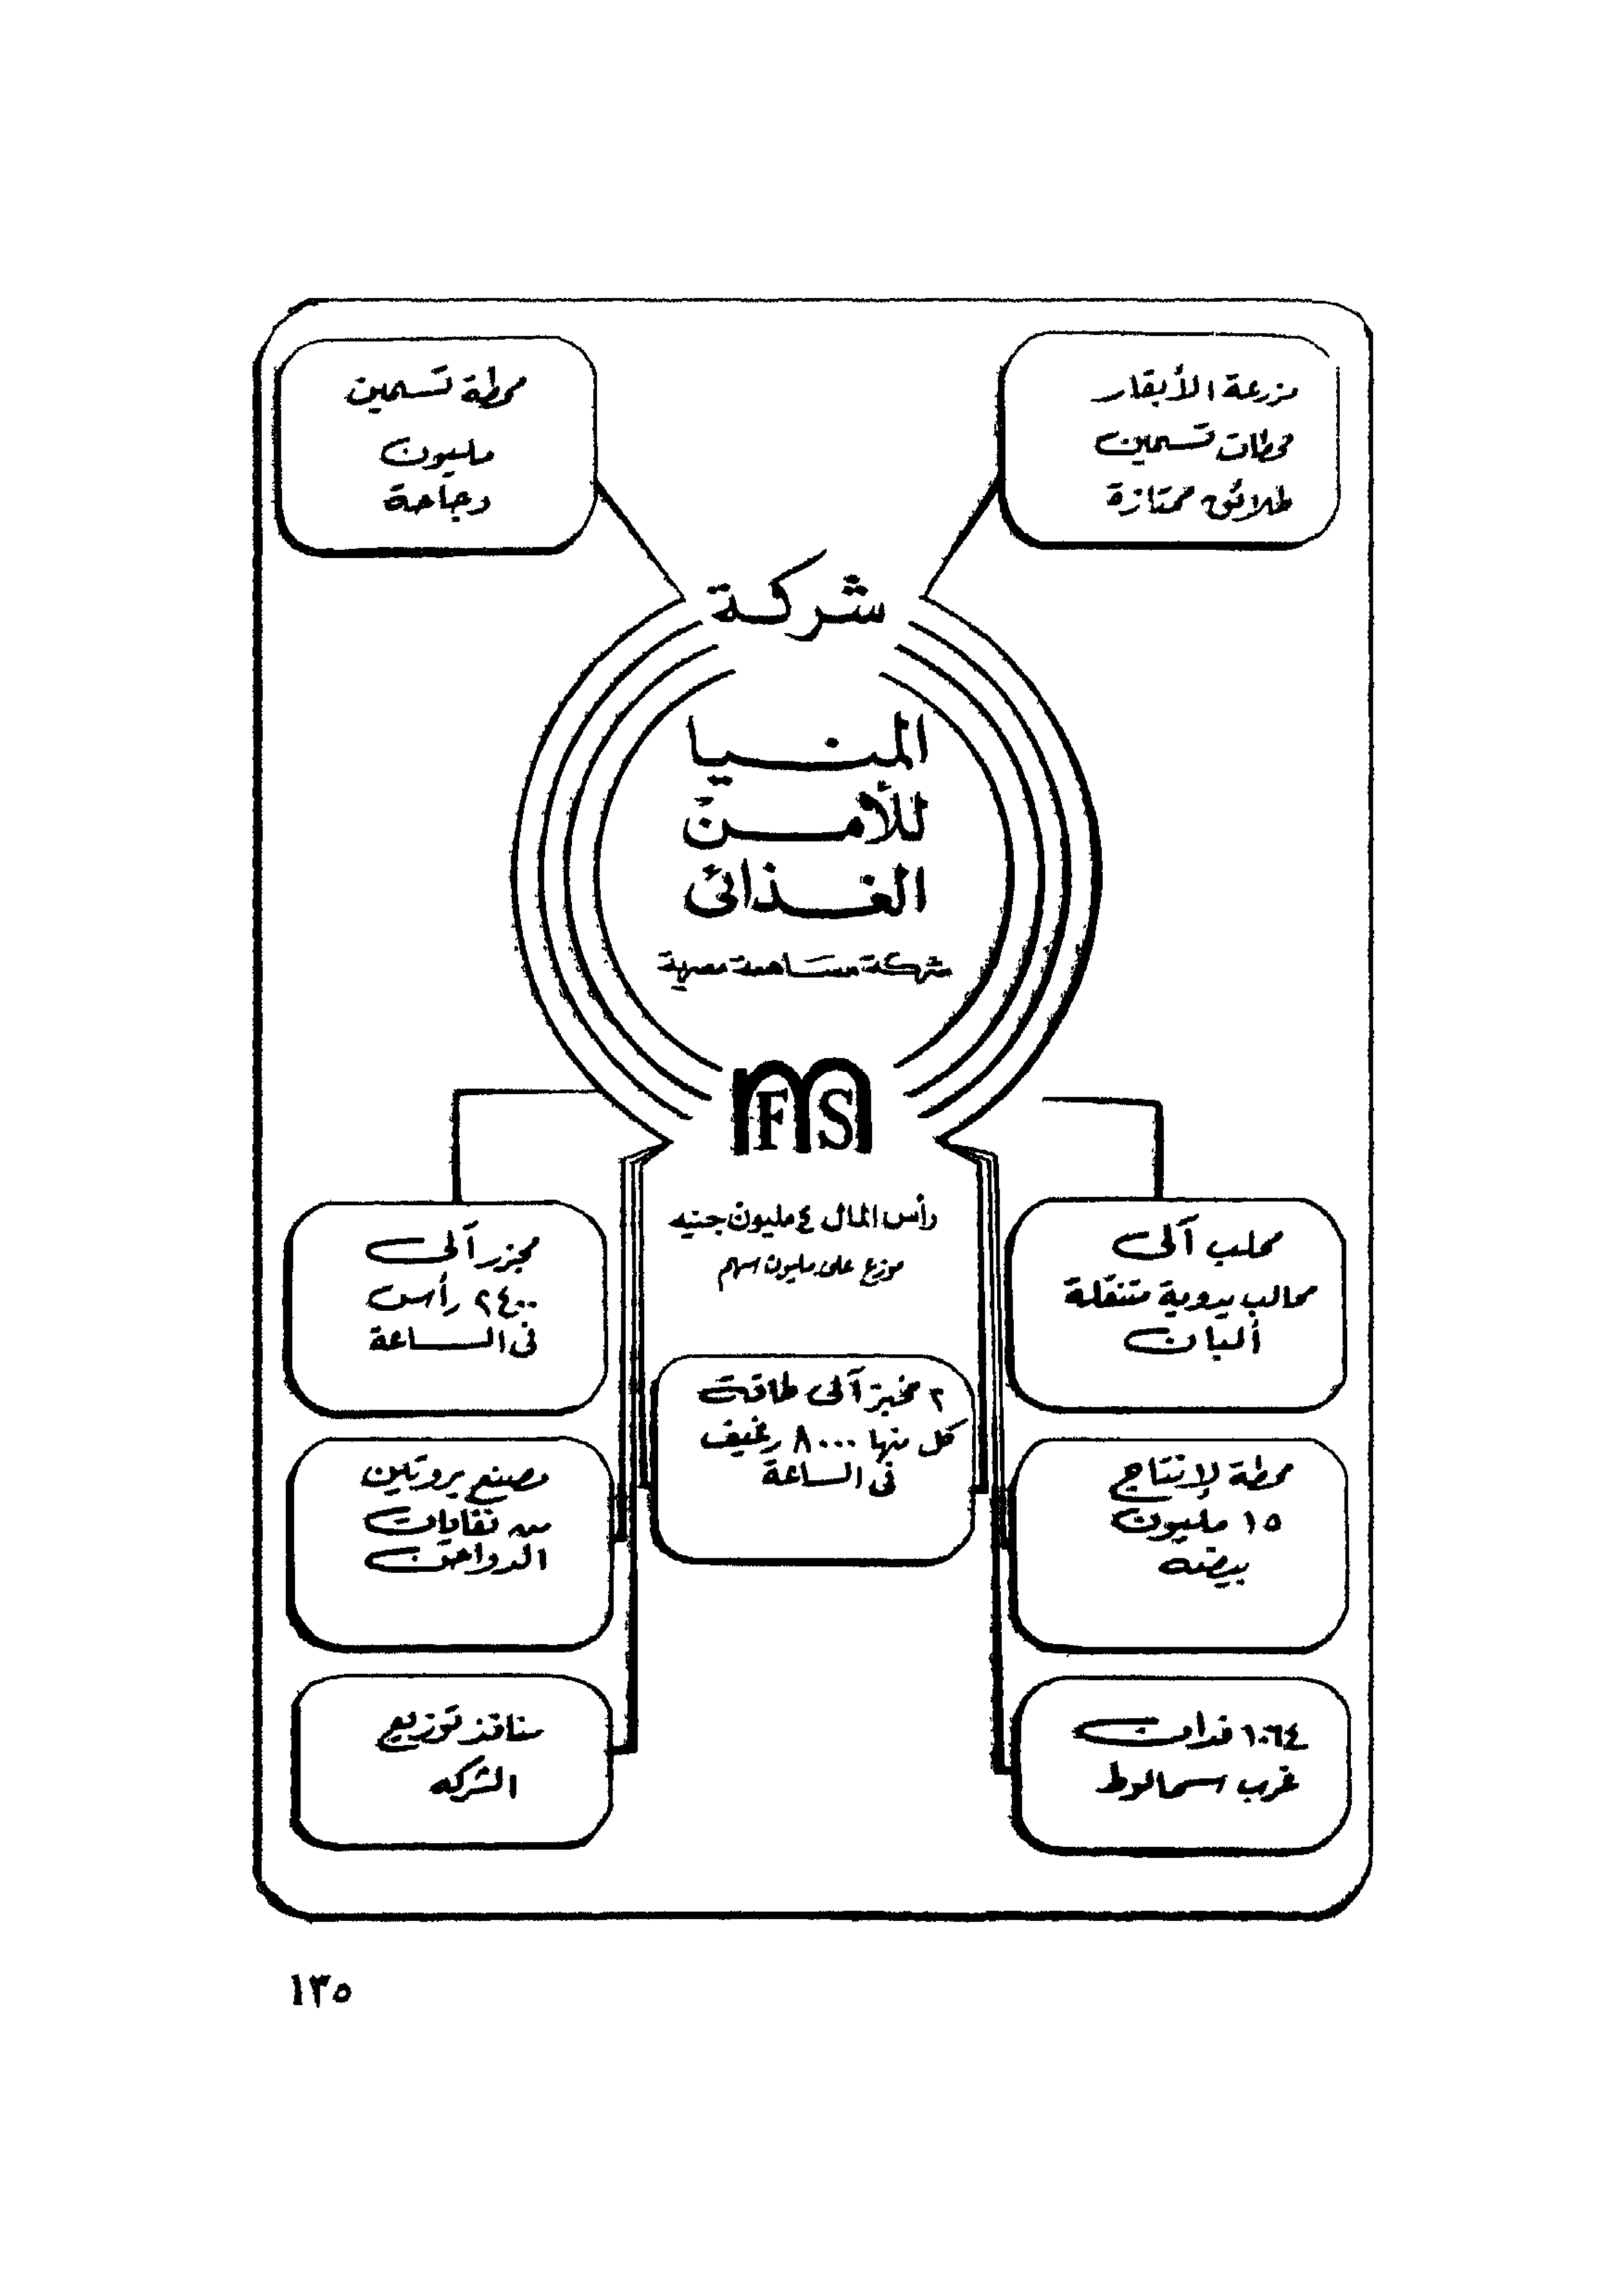 مزرعة الأبقار
محطات تسمين
طلائق ممتازة
محطة تسمين
مليون
دجاجة
شركة
المنيا
للأمن
الغذائى
شركة مساهمة مصرية
mFS
رأس المال ٤ مليون جنيه
موزع على مليون سهم
محلب آلى
محالب يدوية متنقلة
ألبان
مجزر آلى
٢٤٠٠ رأس
فى الساعة
٢ مخبز آلى طاقة
كل منها ٨٠٠٠ رغيف
فى الساعة
محطة لإنتاج
١٥ مليون
بيضه
مصنع بروتين
من نفايات
الدواجن
١٠٦٤ فدان
غرب سمالوط
منافذ توزيع
الشركه
١٣٥